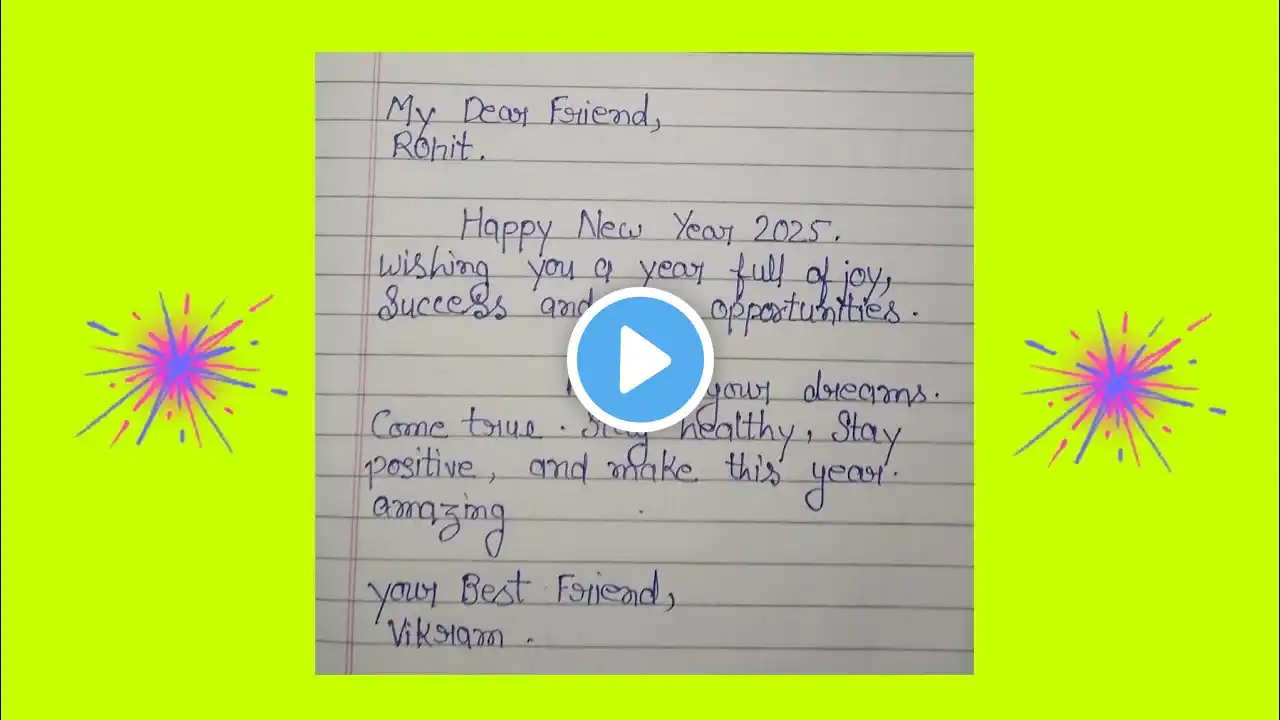 My Dear Friend,
Rohit.
Happy New Year 2025.
Wishing you a year full of joy,
Success and opportunities.
your dreams.
Come true. Stay healthy, Stay
positive, and make this year.
amazing
your Best Friend,
Vikram.